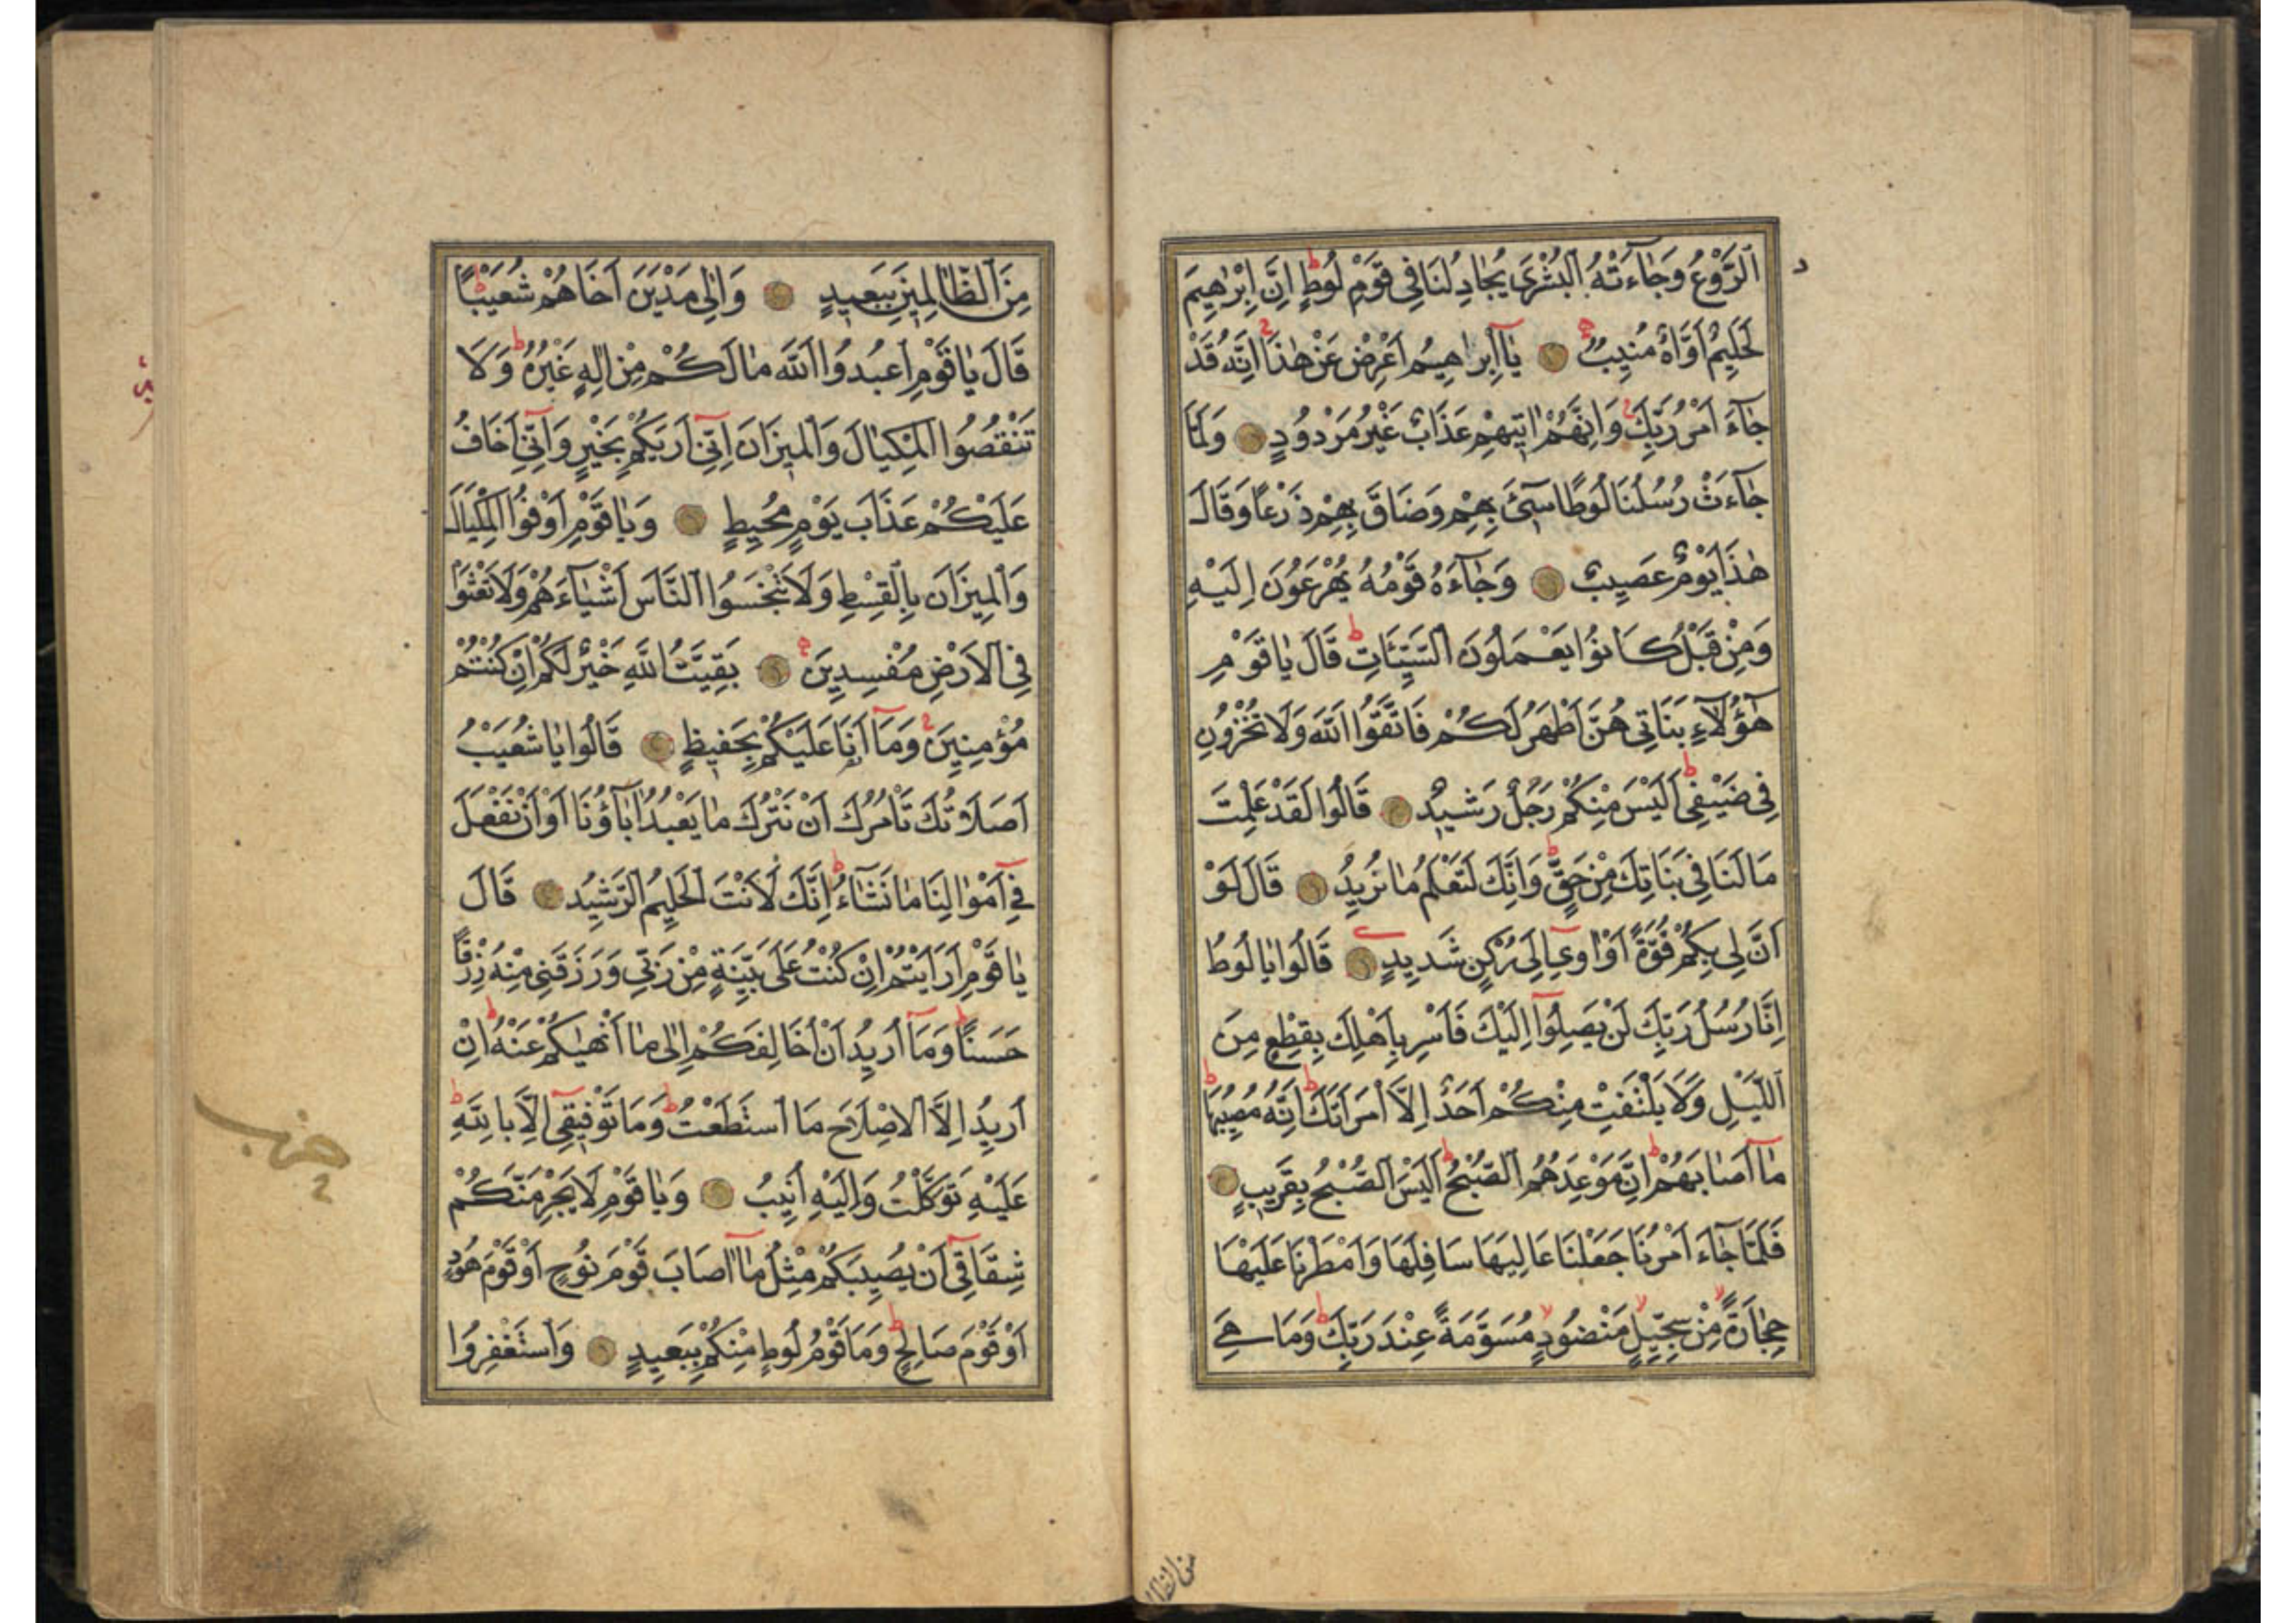 الرَّوْعُ وَجَآءَتْهُ الْبُشْرٰى يُجَادِلُنَا فِى قَوْمِ لُوطٍ اِنَّ اِبْرٰهِيمَ
لَحَلِيمٌ اَوَّاهٌ مُنِيبٌ يَا اِبْرَاهِيمُ اَعْرِضْ عَنْ هٰذَا اِنَّهُ قَدْ
جَآءَ اَمْرُ رَبِّكَ وَاِنَّهُمْ اٰتِيهِمْ عَذَابٌ غَيْرُ مَرْدُودٍ وَلَمَّا
جَآءَتْ رُسُلُنَا لُوطًا سِىٓءَ بِهِمْ وَضَاقَ بِهِمْ ذَرْعًا وَقَالَ
هٰذَا يَوْمٌ عَصِيبٌ وَجَآءَهُ قَوْمُهُ يُهْرَعُونَ اِلَيْهِ
وَمِنْ قَبْلُ كَانُوا يَعْمَلُونَ السَّيِّئَاتِ قَالَ يَا قَوْمِ
هٰٓؤُلَآءِ بَنَاتِى هُنَّ اَطْهَرُ لَكُمْ فَاتَّقُوا اللّٰهَ وَلَا تُخْزُونِ
فِى ضَيْفِى اَلَيْسَ مِنْكُمْ رَجُلٌ رَشِيدٌ قَالُوا لَقَدْ عَلِمْتَ
مَا لَنَا فِى بَنَاتِكَ مِنْ حَقٍّ وَاِنَّكَ لَتَعْلَمُ مَا نُرِيدُ قَالَ لَوْ
اَنَّ لِى بِكُمْ قُوَّةً اَوْ اٰوِى اِلٰى رُكْنٍ شَدِيدٍ قَالُوا يَا لُوطُ
اِنَّا رُسُلُ رَبِّكَ لَنْ يَصِلُوٓا اِلَيْكَ فَاَسْرِ بِاَهْلِكَ بِقِطْعٍ مِنَ
اللَّيْلِ وَلَا يَلْتَفِتْ مِنْكُمْ اَحَدٌ اِلَّا امْرَاَتَكَ اِنَّهُ مُصِيبُهَا
مَآ اَصَابَهُمْ اِنَّ مَوْعِدَهُمُ الصُّبْحُ اَلَيْسَ الصُّبْحُ بِقَرِيبٍ
فَلَمَّا جَآءَ اَمْرُنَا جَعَلْنَا عَالِيَهَا سَافِلَهَا وَاَمْطَرْنَا عَلَيْهَا
حِجَارَةً مِنْ سِجِّيلٍ مَنْضُودٍ مُسَوَّمَةً عِنْدَ رَبِّكَ وَمَا هِىَ
من الظا
مِنَ الظَّالِمِينَ بِبَعِيدٍ وَاِلٰى مَدْيَنَ اَخَاهُمْ شُعَيْبًا
قَالَ يَا قَوْمِ اعْبُدُوا اللّٰهَ مَا لَكُمْ مِنْ اِلٰهٍ غَيْرُهُ وَلَا
تَنْقُصُوا الْمِكْيَالَ وَالْمِيزَانَ اِنِّىٓ اَرٰيكُمْ بِخَيْرٍ وَاِنِّىٓ اَخَافُ
عَلَيْكُمْ عَذَابَ يَوْمٍ مُحِيطٍ وَيَا قَوْمِ اَوْفُوا الْمِكْيَالَ
وَالْمِيزَانَ بِالْقِسْطِ وَلَا تَبْخَسُوا النَّاسَ اَشْيَآءَهُمْ وَلَا تَعْثَوْا
فِى الْاَرْضِ مُفْسِدِينَ بَقِيَّتُ اللّٰهِ خَيْرٌ لَكُمْ اِنْ كُنْتُمْ
مُؤْمِنِينَ وَمَآ اَنَا عَلَيْكُمْ بِحَفِيظٍ قَالُوا يَا شُعَيْبُ
اَصَلَاتُكَ تَأْمُرُكَ اَنْ نَتْرُكَ مَا يَعْبُدُ اٰبَآؤُنَا اَوْ اَنْ نَفْعَلَ
فِىٓ اَمْوَالِنَا مَا نَشَآءُ اِنَّكَ لَاَنْتَ الْحَلِيمُ الرَّشِيدُ قَالَ
يَا قَوْمِ اَرَاَيْتُمْ اِنْ كُنْتُ عَلٰى بَيِّنَةٍ مِنْ رَبِّى وَرَزَقَنِى مِنْهُ رِزْقًا
حَسَنًا وَمَآ اُرِيدُ اَنْ اُخَالِفَكُمْ اِلٰى مَا اَنْهٰيكُمْ عَنْهُ اِنْ
اُرِيدُ اِلَّا الْاِصْلَاحَ مَا اسْتَطَعْتُ وَمَا تَوْفِيقِىٓ اِلَّا بِاللّٰهِ
عَلَيْهِ تَوَكَّلْتُ وَاِلَيْهِ اُنِيبُ وَيَا قَوْمِ لَا يَجْرِمَنَّكُمْ
شِقَاقِىٓ اَنْ يُصِيبَكُمْ مِثْلُ مَآ اَصَابَ قَوْمَ نُوحٍ اَوْ قَوْمَ هُودٍ
اَوْ قَوْمَ صَالِحٍ وَمَا قَوْمُ لُوطٍ مِنْكُمْ بِبَعِيدٍ وَاسْتَغْفِرُوا
حزب